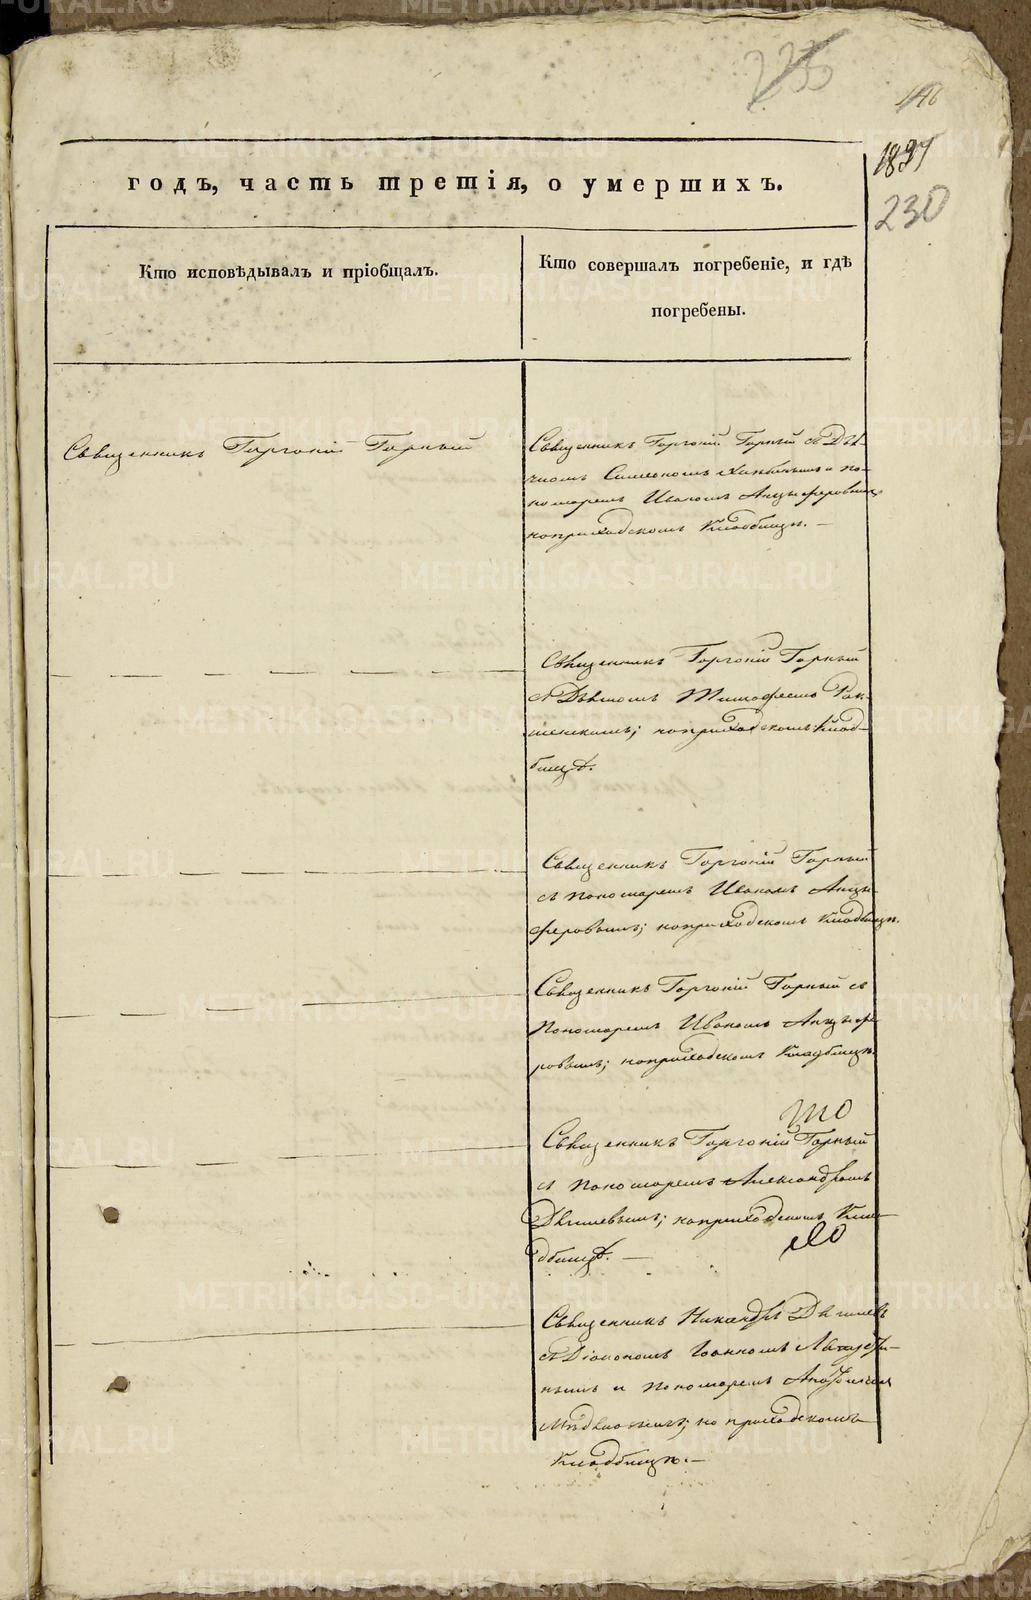 235
146
1837
230
годъ, часть третія, о умершихъ.
Кто исповѣдывалъ и пріобщалъ.
Кто совершалъ погребеніе, и гдѣ
погребены.
Священникъ Горгоній Горный
Священникъ Горгоній Горный съ Дья-
Симеономъ и по-
номаремъ Иваномъ Анцыферовымъ
на приходскомъ кладбищѣ. —
Священникъ Горгоній Горный
съ Дьячкомъ Тимофеемъ
на приходскомъ клад-
бищѣ.
Священникъ Горгоній Горный
съ пономаремъ Иваномъ Анцы-
феровымъ; на приходскомъ кладбищѣ.
Священникъ Горгоній Горный съ
Пономаремъ Иваномъ Анцыфе-
ровымъ; на приходскомъ кладбищѣ.
Священникъ Горгоній Горный
съ Пономаремъ Александромъ
на приходскомъ кла-
дбищѣ. —
Священникъ
съ Діакономъ Іоанномъ
и Пономаремъ
на приходскомъ
кладбищѣ. —